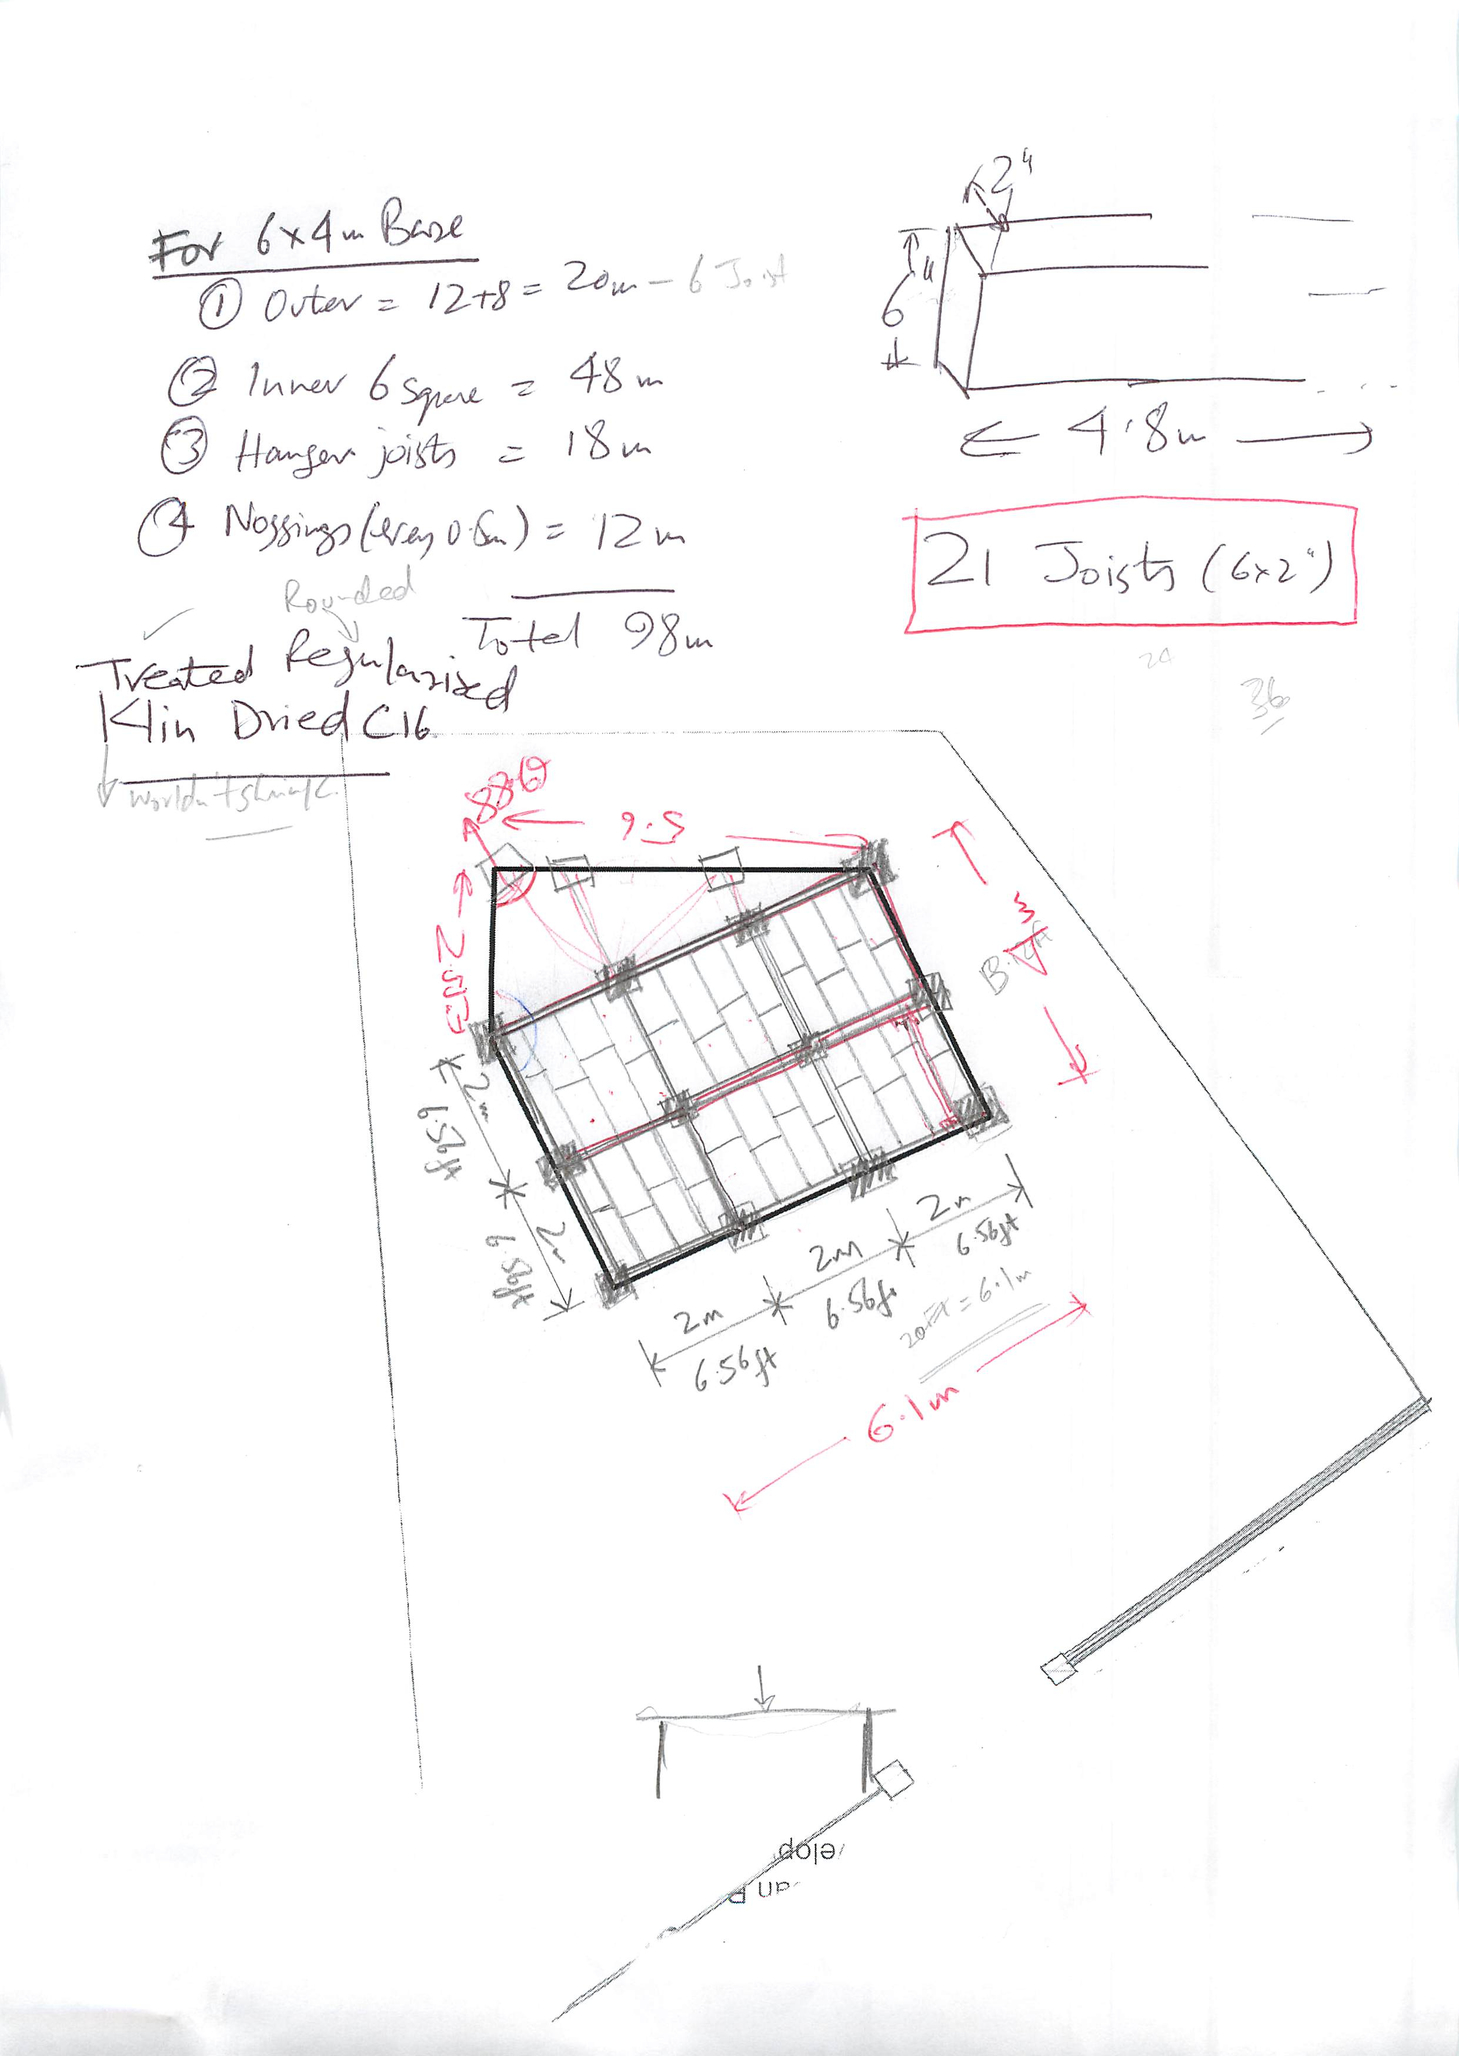 For 6x4m Base
① Outer = 12+8 = 20m - 6 Joist
② Inner 6 square = 48m
③ Hanger joists = 18m
④ Noggings (every 0.5m) = 12m
Total 98m
Rounded
Treated Regularized
Kiln Dried C16
2"
6"
4.8m
21 Joists (6x2")
20
36
88.6
2m
6.56ft
2m
6.56ft
2m
6.56ft
2m
6.56ft
2m
6.56ft
20ft = 6.1m
6.1m
velop
an P